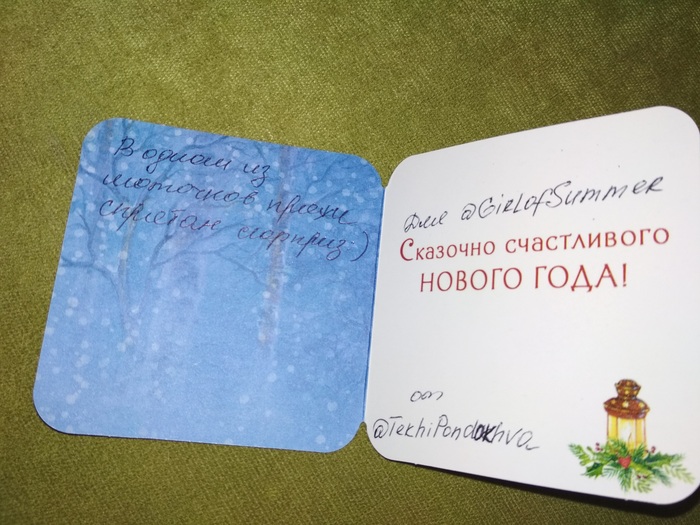 В одном из
моточков пряжи
спрятан сюрприз)
Для @GirlofSummer
Сказочно счастливого
НОВОГО ГОДА!
от
@TekhiPondokhva